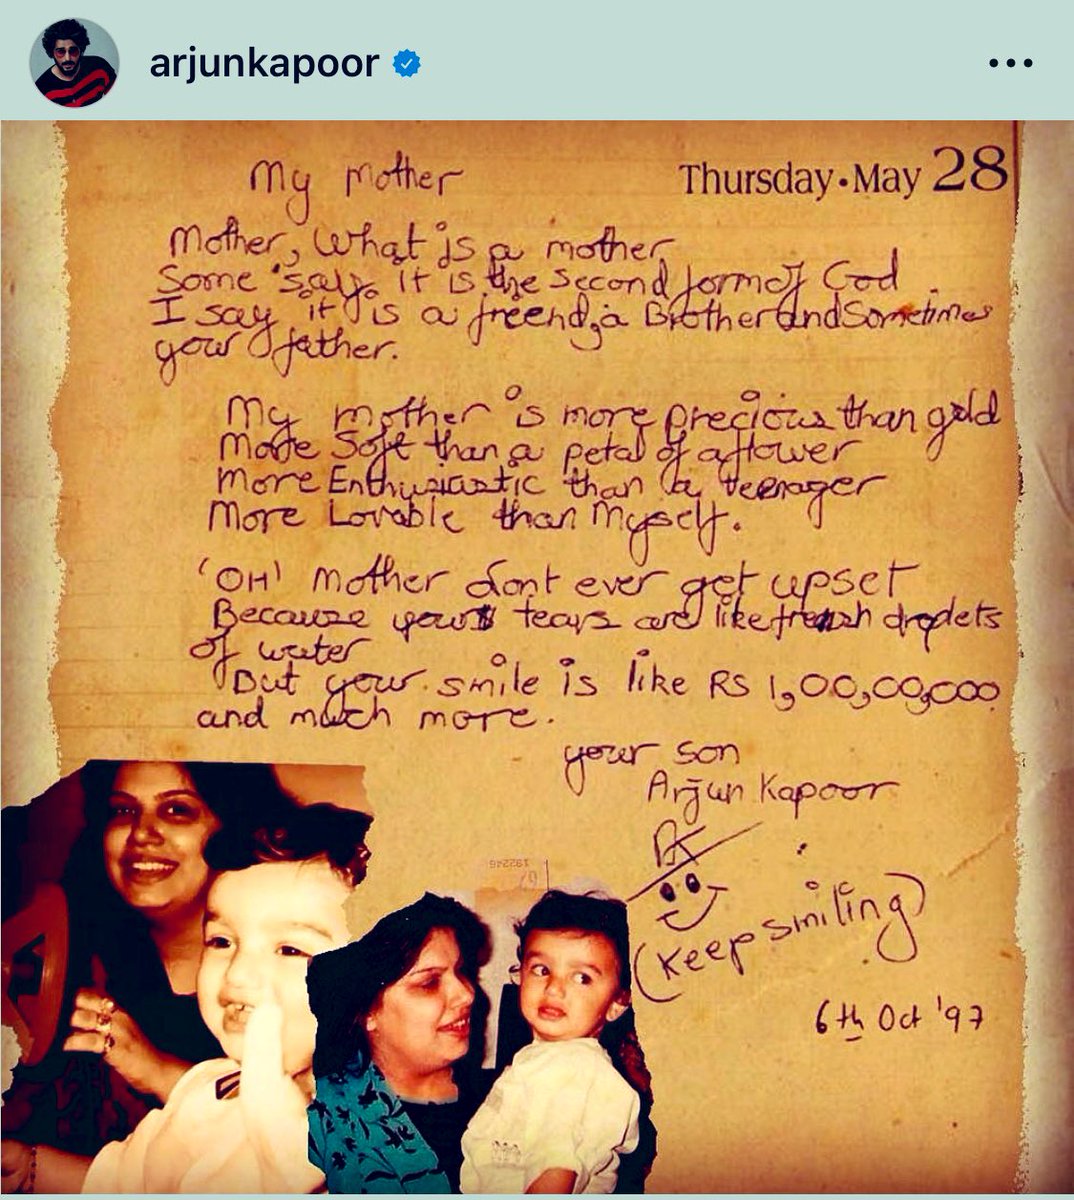 arjunkapoor
My Mother
Thursday • May 28
Mother, What is a mother
Some 'say. It is the second form of God.
I say it is a freend, a Brother and Sometimes
your father.
My mother is more precious than gold
More Soft than a petal of a flower
More Enthusiastic than a teenager
More Lovable than Myself.
'OH' Mother dont ever get upset
Because your tears are like fresh droplets
of water
But your smile is like RS 1,00,00,000
and much more.
your son
Arjun Kapoor
(Keep smiling)
6th Oct '97
192246